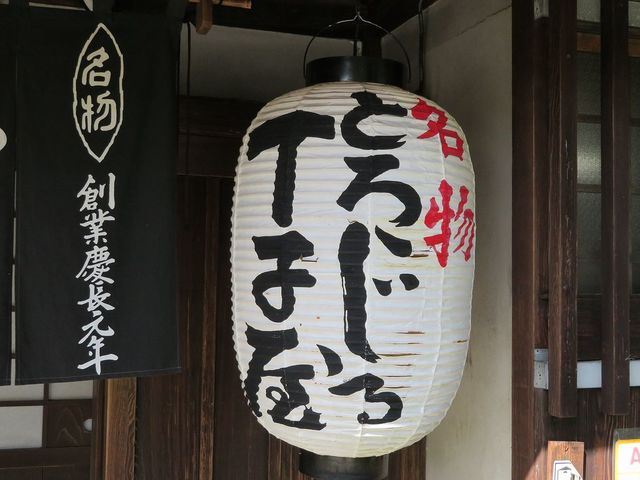 名物
創業慶長元年
名物
とろゝじる
丁子屋